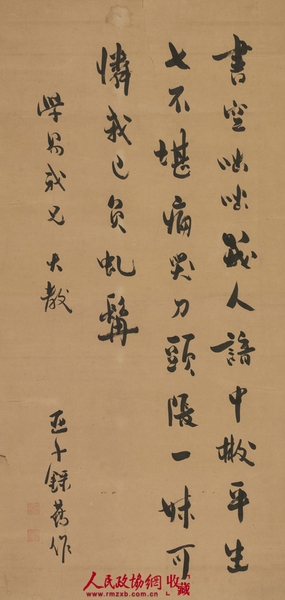 書空咄咄幾人諳中散平生
七不堪痛哭刀頭張一妹可
憐我已負虬髯
學易我兄大教
亞子録舊作
人民政協網
www.rmzxb.com.cn
收藏